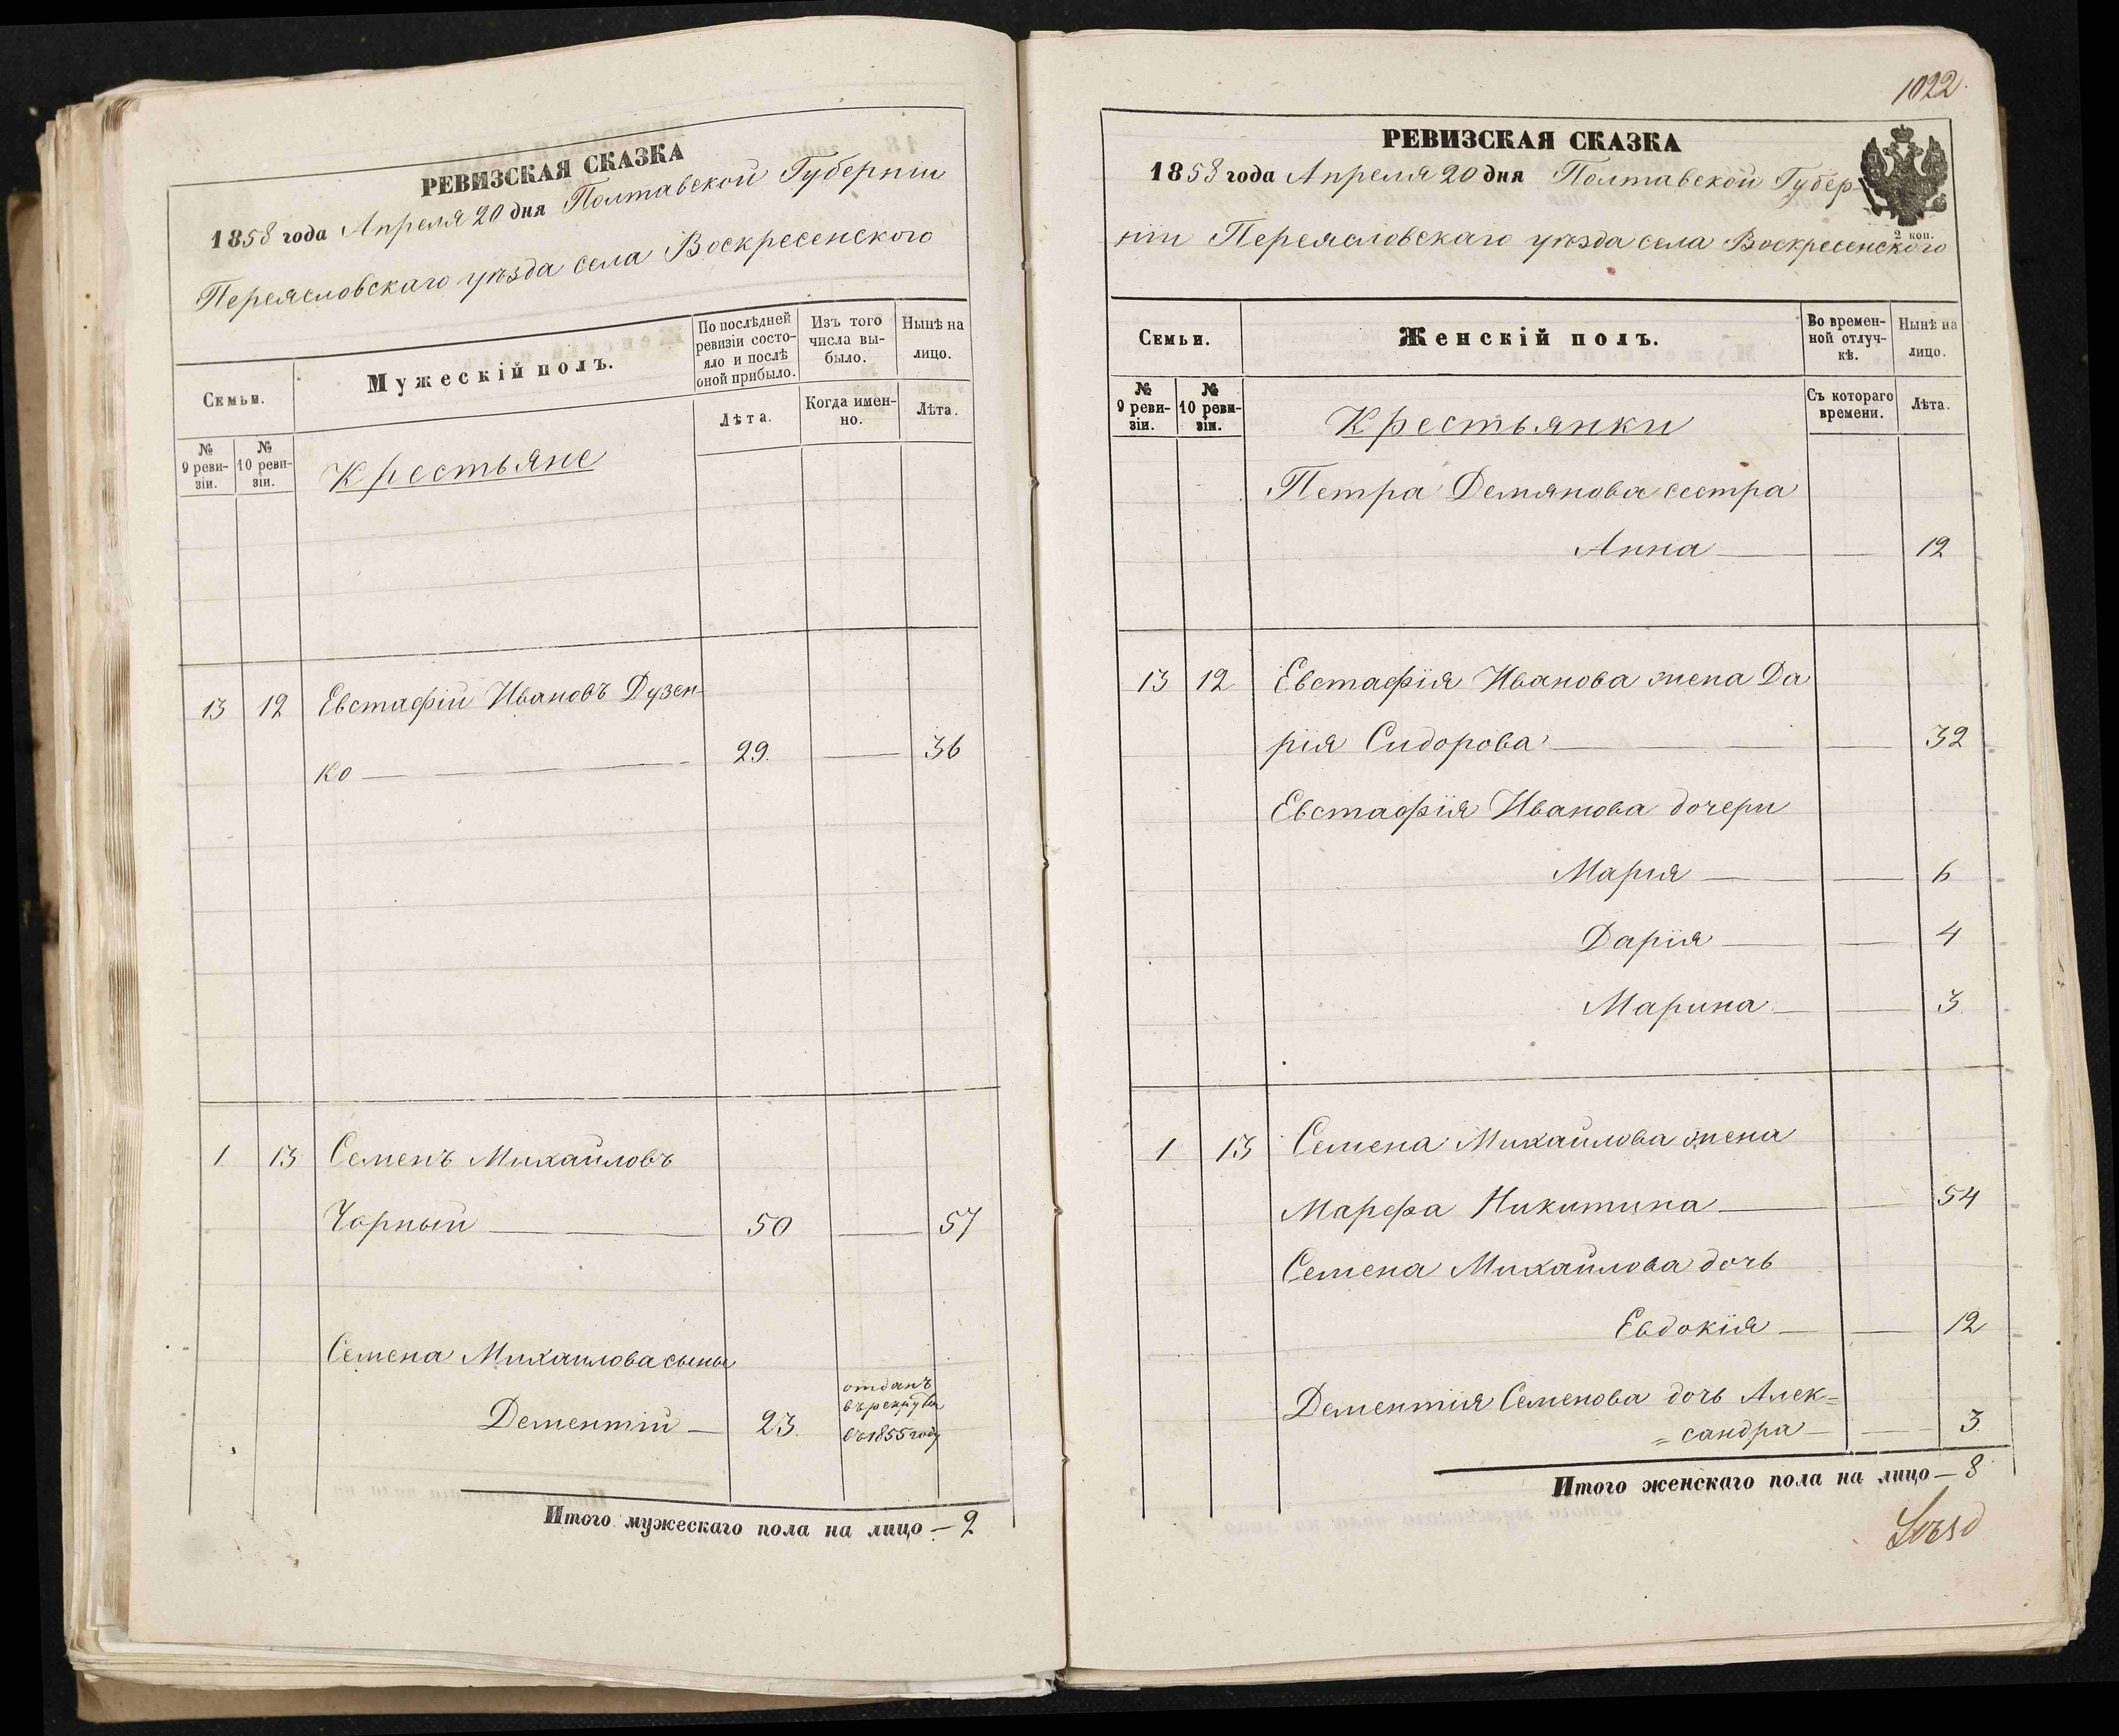 РЕВИЗСКАЯ СКАЗКА
1858 года Апреля 20 дня Полтавской Губерніи
Переясловскаго уѣзда села Воскресенского
Семьи.
Мужескій полъ.
По послѣдней ревизіи состояло и послѣ оной прибыло.
Изъ того числа выбыло.
Нынѣ на лицо.
№ 9 ревизіи.
№ 10 ревизіи.
Лѣта.
Когда именно.
Лѣта.
Крестьяне
13 12 Евстафій Ивановъ Дузен-
ко — 29. — 36
1 13 Семенъ Михайловъ
Чорный — 50 — 57
Семена Михаилова сыны
отданъ
въ рекруты
Дементій — 23. въ 1855 году
Итого мужескаго пола на лицо — 2
1022.
РЕВИЗСКАЯ СКАЗКА
1858 года Апреля 20 дня Полтавской Губер-
2 коп.
ніи Переясловскаго уѣзда села Воскресенского
Семьи.
Женскій полъ.
Во временной отлучкѣ.
Нынѣ на лицо.
№ 9 ревизіи.
№ 10 ревизіи.
Съ котораго времени.
Лѣта.
Крестьянки
Петра Демянова сестра
Анна — — 12
13 12 Евстафія Иванова жена Да
рія Сидорова — — 32
Евстафія Иванова дочери
Марія — — 6
Дарія — — 4
Марина — — 3
1 13 Семена Михайлова жена
Марфа Никитина — — 54
Семена Михайлова дочь
Евдокія — — 12
Дементія Семенова дочь Алек=
=сандра — — 3.
Итого женскаго пола на лицо — 8